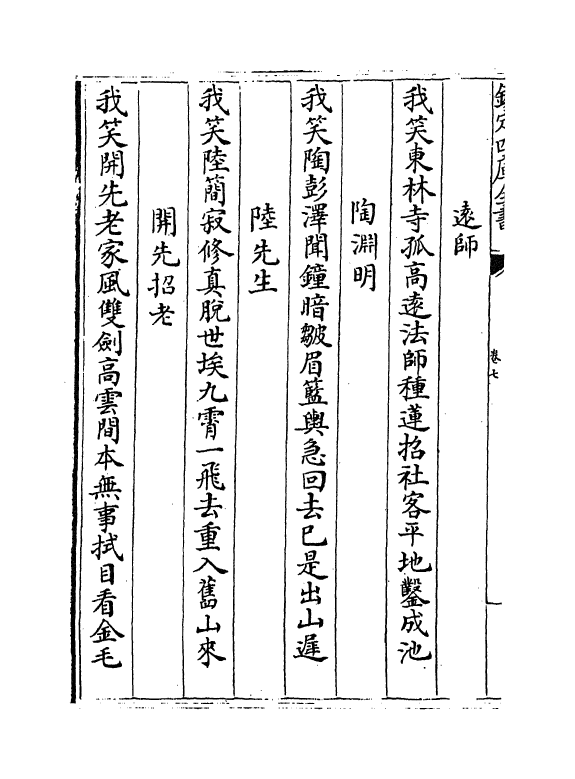 欽定四庫全書
卷七
遠師
我笑東林寺孤高遠法師種蓮招社客平地鑿成池
陶淵明
我笑陶彭澤聞鐘暗皺眉籃輿急回去已是出山遲
陸先生
我笑陸簡寂修真脫世埃九霄一飛去重入舊山來
開先招老
我笑開先老家風雙劍高雲間本無事拭目看金毛